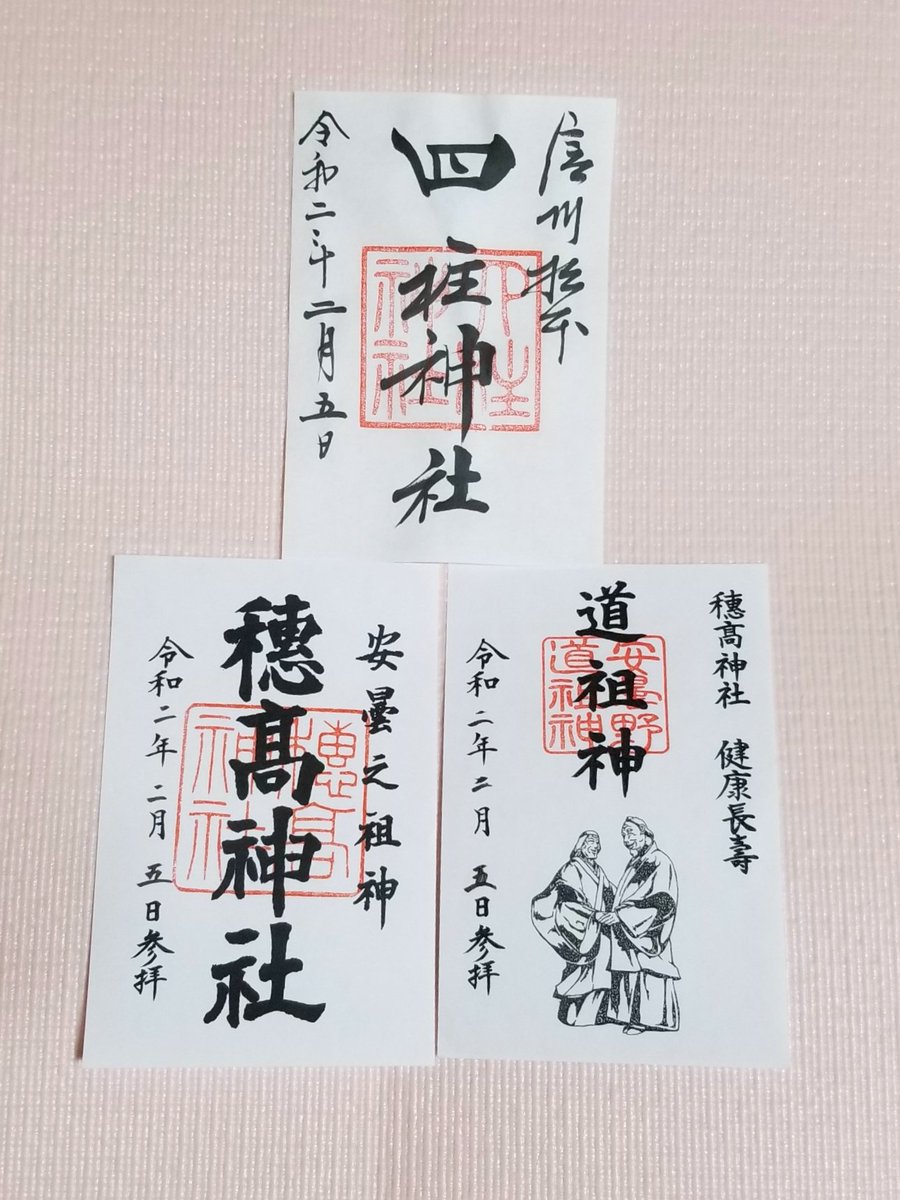 信州松本
四柱神社
四柱神社
令和二年二月五日
安曇之祖神
穂髙神社
穂高神社
令和二年二月五日参拝
穂髙神社 健康長壽
道祖神
安曇野
道祖神
令和二年二月五日参拝